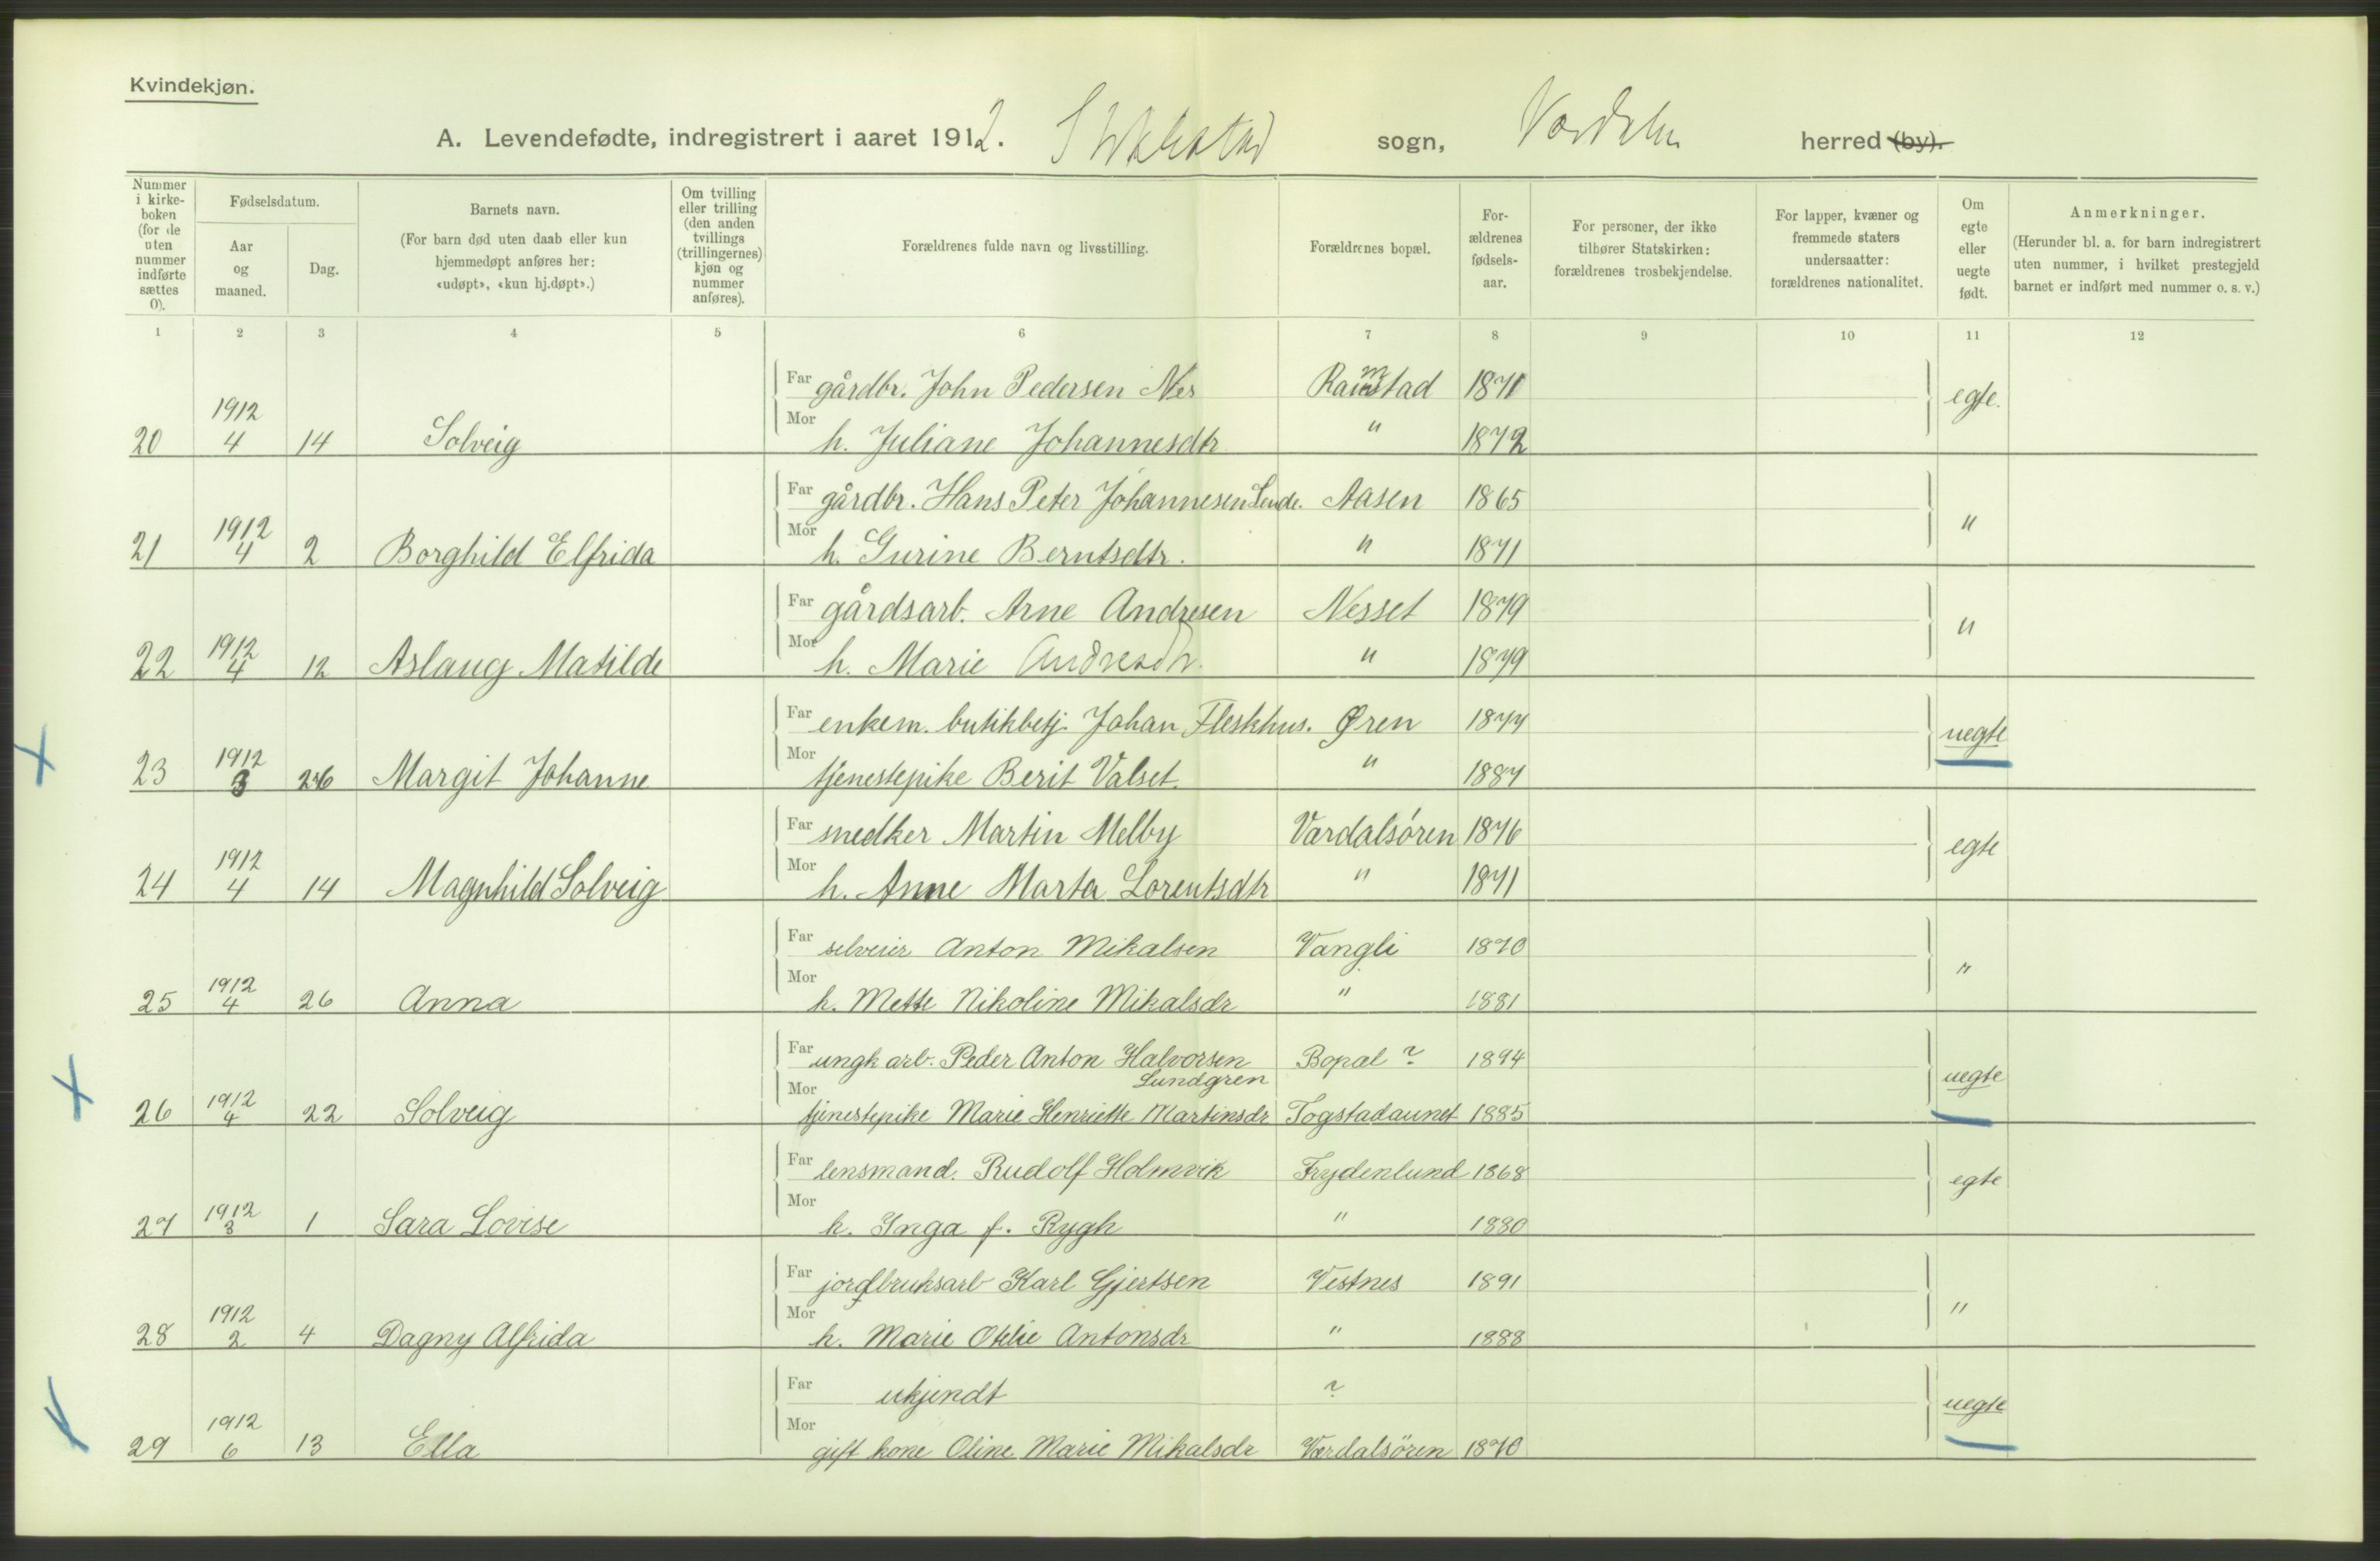 Kvindekjøn.
A. Levendefødte, indregistrert i aaret 1912. Stiklestad sogn, Værdalen herred (by).
Nummer i kirke-boken (for de uten nummer indførte sættes 0).
Fødselsdatum.
Aar og maaned.
Dag.
Barnets navn.
(For barn død uten daab eller kun hjemmedøpt anføres her: «udøpt», «kun hj.døpt».)
Om tvilling eller trilling (den anden tvillings (trillingernes) kjøn og nummer anføres).
Forældrenes fulde navn og livsstilling.
Forældrenes bopæl.
For-ældrenes fødsels-aar.
For personer, der ikke tilhører Statskirken: forældrenes trosbekjendelse.
For lapper, kvæner og fremmede staters undersaatter: forældrenes nationalitet.
Om egte eller uegte født.
Anmerkninger.
(Herunder bl. a. for barn indregistrert uten nummer, i hvilket prestegjeld barnet er indført med nummer o. s. v.)
1 2 3 4 5 6 7 8 9 10 11 12
Far gårdbr. John Pedersen Nes Ramstad 1871 egte.
20 1912 4 14 Solveig Mor h. Juliane Johannesdtr " 1872
Far gårdbr. Hans Peter Johannesen Lende. Aasen 1865 "
21 1912 4 2 Borghild Elfrida Mor h. Gurine Berntsdtr. " 1871
Far gårdsarb. Arne Andresen Nesset 1879 "
22 1912 4 12 Aslaug Matilde Mor h. Marie Andresdtr. " 1879
Far enkem. butikbetj. Johan Fleskhus. Øren 1877 uegte
23 1912 3 26 Margit Johanne Mor tjenestepike Berit Valset. " 1887
Far snedker Martin Melby Værdalsøren 1876 egte
24 1912 4 14 Magnhild Solveig Mor h. Anne Marta Lorentsdtr " 1871
Far selveier Anton Mikalsen Vangli 1870 "
25 1912 4 26 Anna Mor h. Mette Nikoline Mikalsdr " 1881
Far ungk arb. Peder Anton Halvorsen Lundgren Bopæl ? 1894 uegte
26 1912 4 22 Solveig Mor tjenestepike Marie Henriette Martinsdr Togstadaunet 1885
Far lensmand. Rudolf Holmvik Frydenlund 1868 egte
27 1912 3 1 Sara Lovise Mor h. Inga f. Rygh " 1880
Far jordbruksarb Karl Gjertsen Vestnes 1891 "
28 1912 2 4 Dagny Alfrida Mor h. Marie Otelie Antonsdr " 1888
Far ukjendt ? uegte
29 1912 6 13 Ella Mor gift kone Oline Marie Mikalsdr Værdalsören 1870